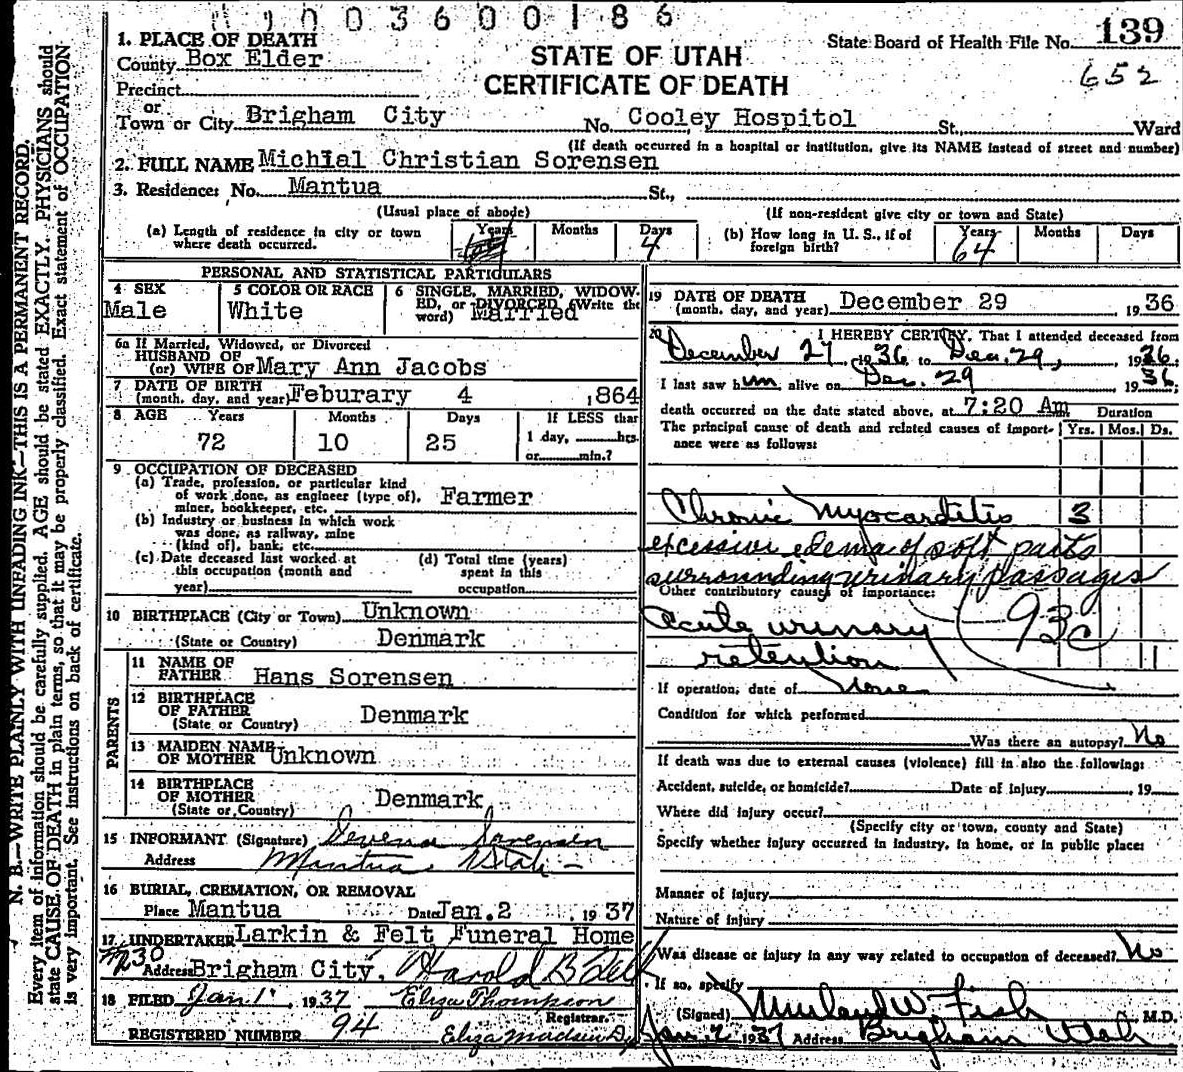 1003600186
State Board of Health File No. 139
652
STATE OF UTAH
CERTIFICATE OF DEATH
1. PLACE OF DEATH
County Box Elder
Precinct
or
Town or City Brigham City No. Cooley Hospitol St., Ward
(If death occurred in a hospital or institution, give its NAME instead of street and number)
2. FULL NAME Michial Christian Sorensen
3. Residence: No. Mantua St.,
(Usual place of abode) (If non-resident give city or town and State)
(a) Length of residence in city or town where death occurred. Years Months Days 4
(b) How long in U. S., if of foreign birth? Years 64 Months Days
PERSONAL AND STATISTICAL PARTICULARS
4 SEX Male
5 COLOR OR RACE White
6 SINGLE, MARRIED, WIDOWED, or DIVORCED (Write the word) Married
6a If Married, Widowed, or Divorced
HUSBAND OF
(or) WIFE OF Mary Ann Jacobs
7 DATE OF BIRTH
(month, day, and year) Feburary 4 1864
8 AGE Years Months Days If LESS than
72 10 25 1 day, hrs.
or min.?
9 OCCUPATION OF DECEASED
(a) Trade, profession, or particular kind
of work done, as engineer (type of),
miner, bookkeeper, etc. Farmer
(b) Industry or business in which work
was done, as railway, mine
(kind of), bank, etc.
(c) Date deceased last worked at
this occupation (month and
year)
(d) Total time (years)
spent in this
occupation
10 BIRTHPLACE (City or Town) Unknown
(State or Country) Denmark
PARENTS
11 NAME OF
FATHER Hans Sorensen
12 BIRTHPLACE
OF FATHER
(State or Country) Denmark
13 MAIDEN NAME
OF MOTHER Unknown
14 BIRTHPLACE
OF MOTHER
(State or Country) Denmark
15 INFORMANT (Signature) Sorensen
Address Mantua Utah
16 BURIAL, CREMATION, OR REMOVAL
Place Mantua Date Jan. 2 1937
17. UNDERTAKER Larkin & Felt Funeral Home
Address Brigham City, Harold B Felt
18 FILED Jan 1 1937 Eliza Thompson
Registrar.
REGISTERED NUMBER 94 Eliza Madsen Dy
19 DATE OF DEATH
(month, day, and year) December 29 1936
20 I HEREBY CERTIFY, That I attended deceased from
December 27 1936 to Dec. 29, 1936;
I last saw him alive on Dec. 29 1936;
death occurred on the date stated above, at 7:20 Am Duration
The principal cause of death and related causes of importance were as follows: Yrs. Mos. Ds.
Chronic Myocarditis 3
excessive edema of soft parts
surrounding urinary passages
Other contributory causes of importance:
93c
acute urinary
retention 1
If operation, date of None
Condition for which performed
Was there an autopsy? No
If death was due to external causes (violence) fill in also the following:
Accident, suicide, or homicide? Date of injury 19
Where did injury occur?
(Specify city or town, county and State)
Specify whether injury occurred in industry, in home, or in public place:
Manner of injury
Nature of injury
Was disease or injury in any way related to occupation of deceased? No
If so, specify
(Signed) W. Fish M.D.
Jan. 2 1937 Address Brigham Utah
N. B.—WRITE PLAINLY WITH UNFADING INK—THIS IS A PERMANENT RECORD.
Every item of information should be carefully supplied. AGE should be stated EXACTLY. PHYSICIANS should
state CAUSE OF DEATH in plain terms, so that it may be properly classified. Exact statement of OCCUPATION
is very important. See instructions on back of certificate.